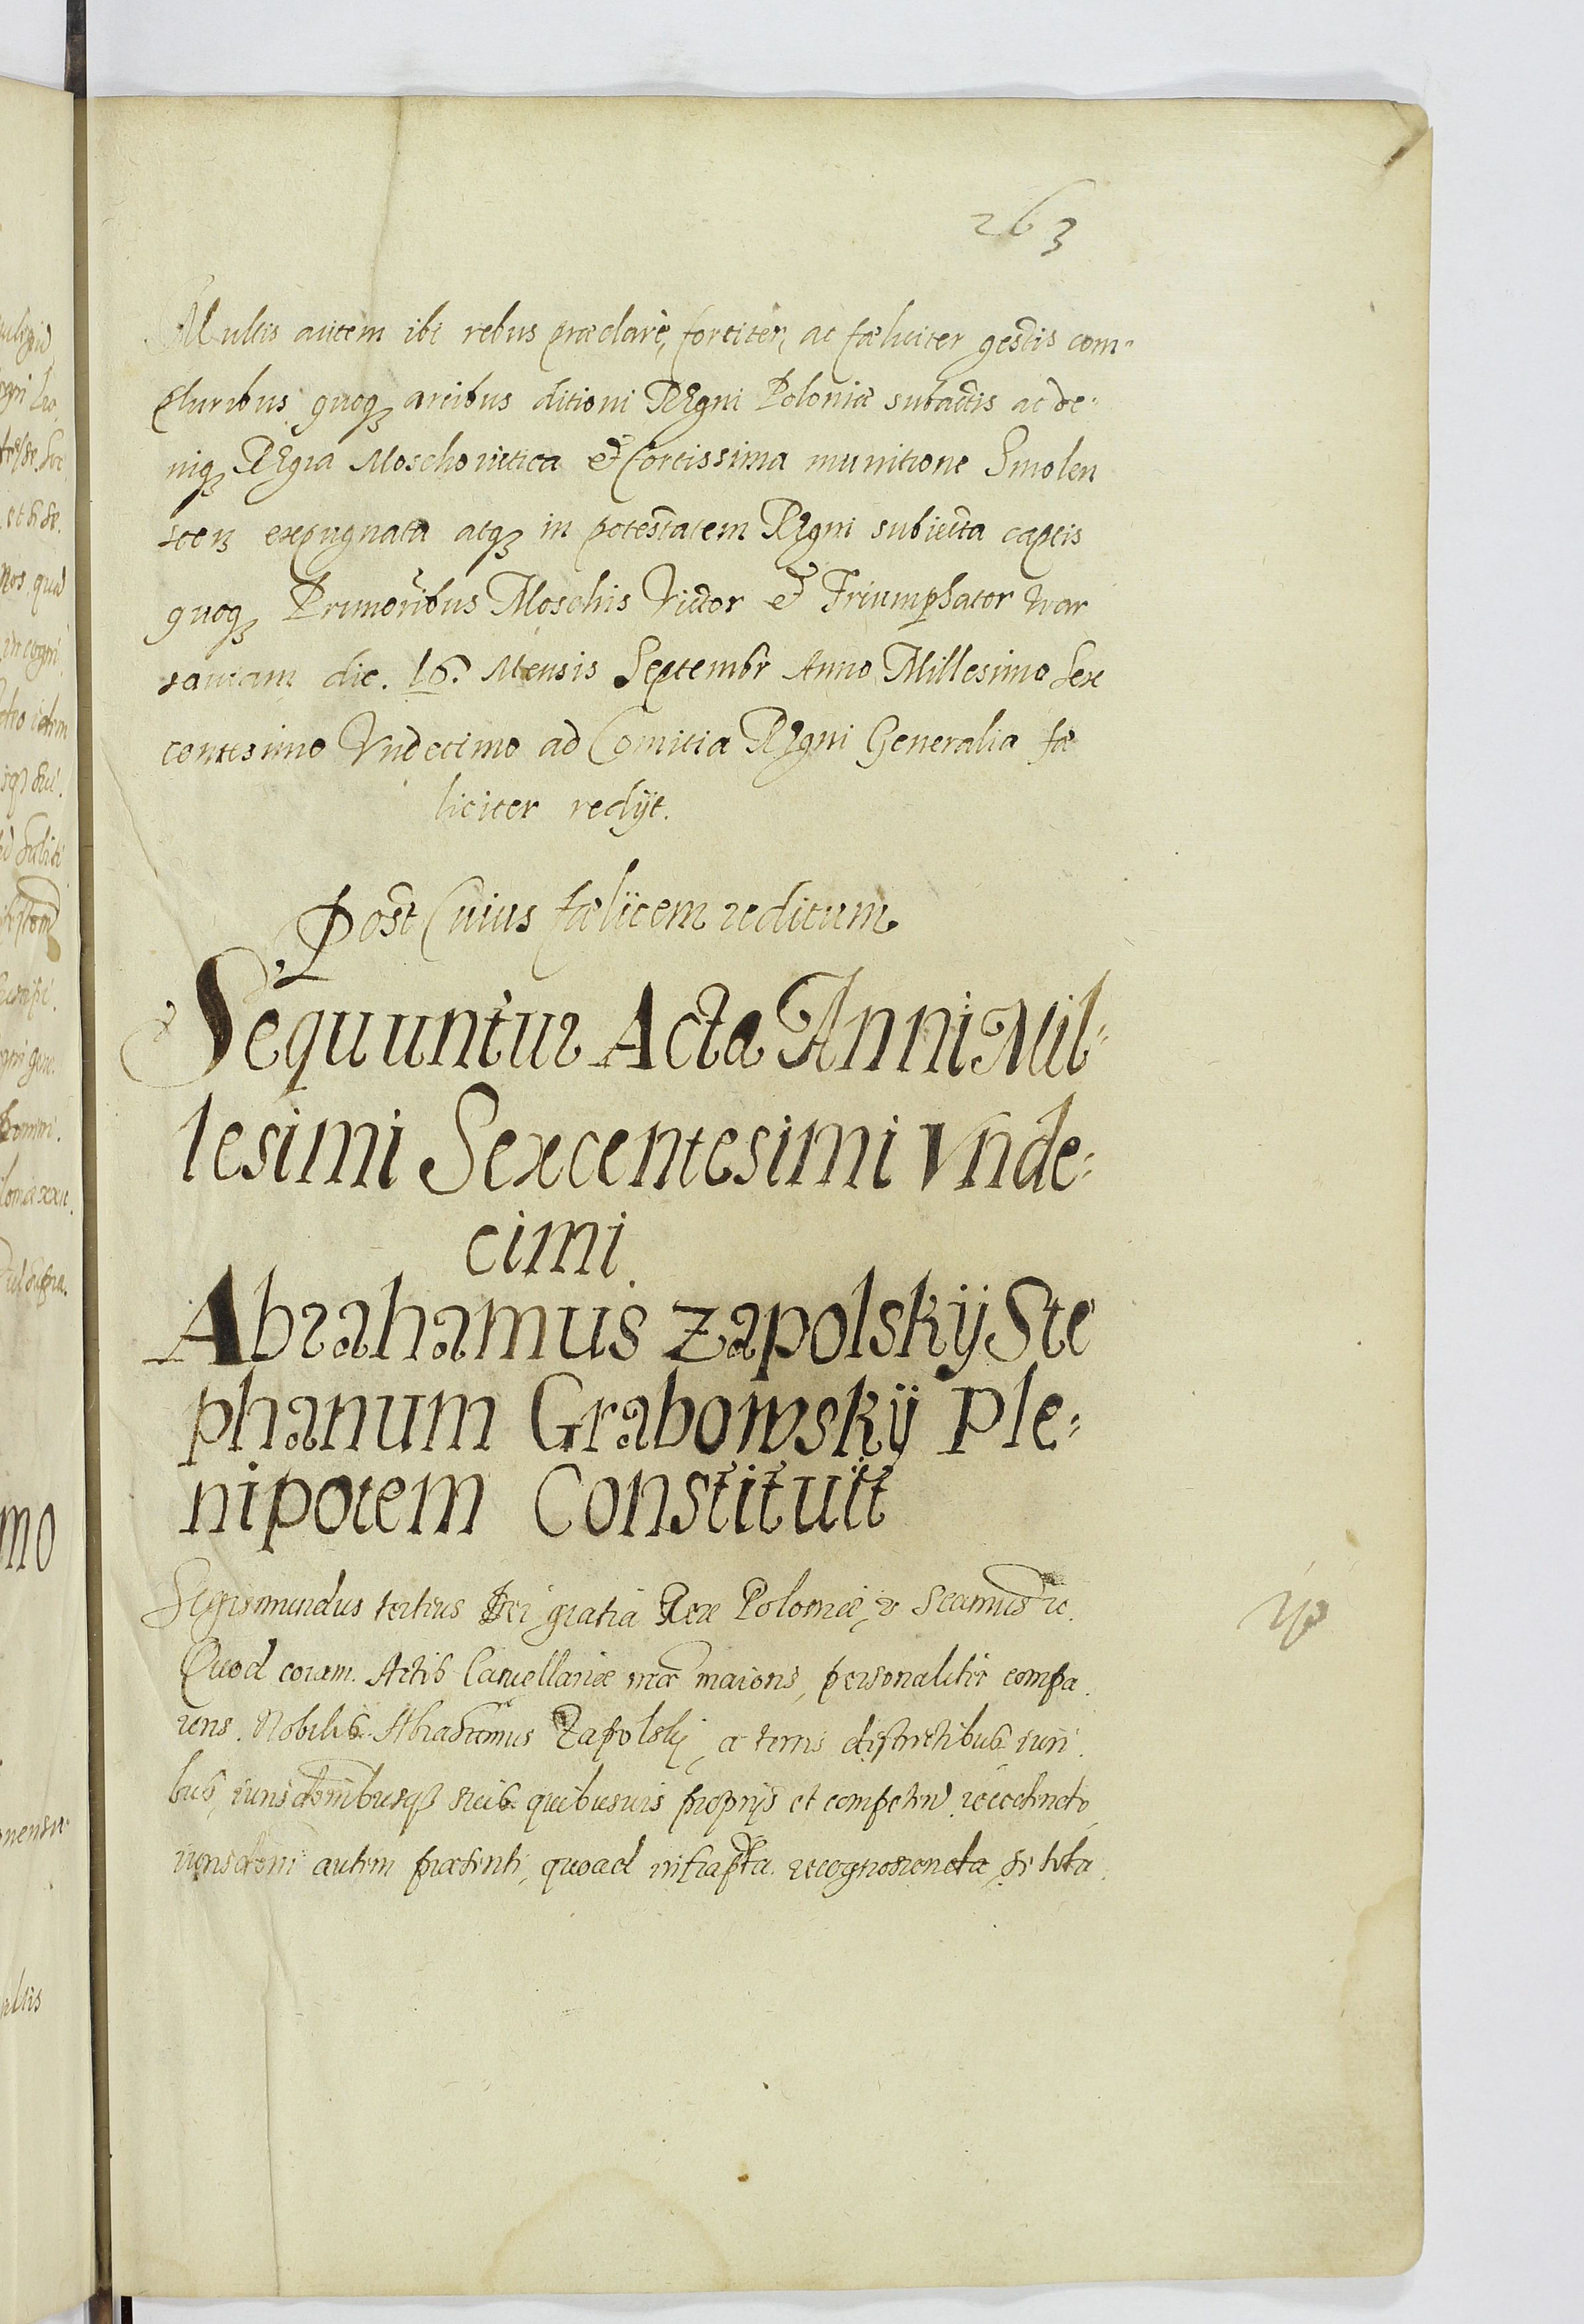 263
Multis autem ibi rebus præclarè, fortiter, ac fæliciter gestis com-
pluribus quoqꝫ arcibus ditioni Regni Poloniæ subactis ac de-
niqꝫ Regia Moschovitica et fortissima munitione Smolen
scen expugnata atqꝫ in potestatem Regni subiecta captis
quoqꝫ Primoribus Moschis Victor et Triumphator War
saviam die. 16. Mensis Septembr Anno Millesimo Sex
centesimo Vndecimo ad Comitia Regni Generalia fæ
liciter redijt.
Post Cuius fælicem reditum
Sequuntur Acta Anni Mil-
lesimi Sexcentesimi Vnde-
cimi
Abrahamus Zapolskij Ste
phanum Grabowskij Ple-
nipotem Constituit
Sigismundus tertius Dei gratia Rex Poloniæ,
Quod coram Actis Cancellariæ maioris, personaliter compa
rens Nobilis Abrahamus Zapolskj, a terris districtibus iuri
bus, suis quibusuis proprijs et recedendo
autem præsenti, quoad infrascripta recognoscenda se